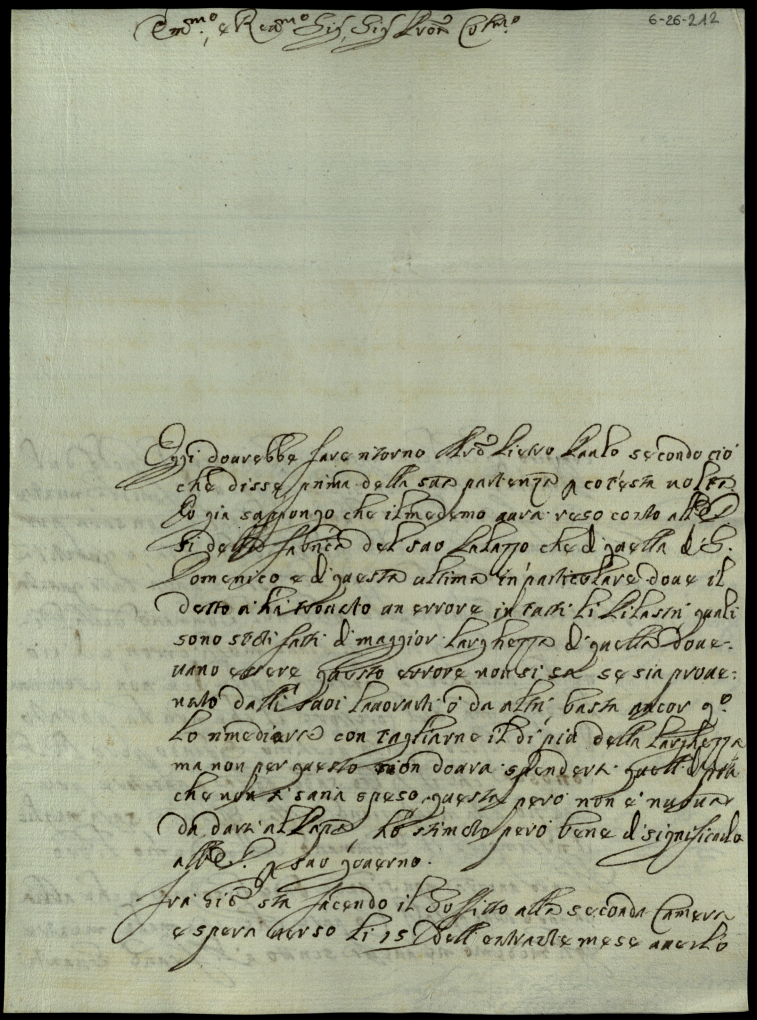 6-26-212
Em.mo, e Rev.mo Sig. Sig. Pron. Col.mo
Oggi dovrebbe fare ritorno Pietro Paulo secondo ciò
che disse prima della sua partenza p cotesta volta
Io già suppongo che il medemo avrà reso conto all'E.V.
si della fabrica del suo Palazzo che di quella di S.
Domenico e di questa ultima in particulare dove il
detto vi ha trovato un errore in tutti li Pilastri quali
sono stati fatti di maggior larghezza di quella dove-
vano essere questo errore non si sa se sia prove-
nuto dalli suoi lavoranti ò da altri, basta ancor q.o
lo rimedierà con tagliarne il di più della larghezza
ma non per questo non dovrà spendere quelli
che non si saria speso, questa però non è nuova
da darsi al Papa, Io stimato però bene di significarlo
all'E.V. p suo governo.
Fra Gio sta facendo il soffitto alla seconda Camera
e spera verso li 15 dell'entrante mese averlo